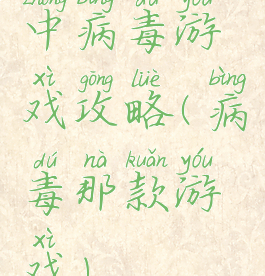 zhòng bìng dú yóu
中病毒游
xì gōng lüè bìng
戏攻略(病
dú nà kuǎn yóu
毒那款游
xì
戏)